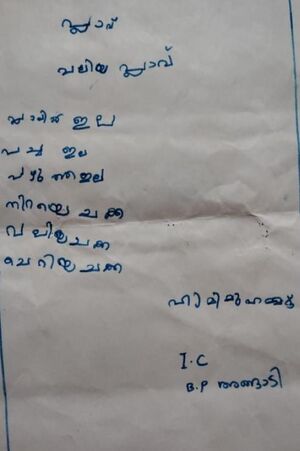 പ്ലാവ്
വലിയ പ്ലാവ്
പ്ലാവിൽ ഇല
പച്ച ഇല
പഴുത്തഇല
നിറയെ ചക്ക
വലിയചക്ക
ചെറിയ ചക്ക
I.C
B.P അങ്ങാടി